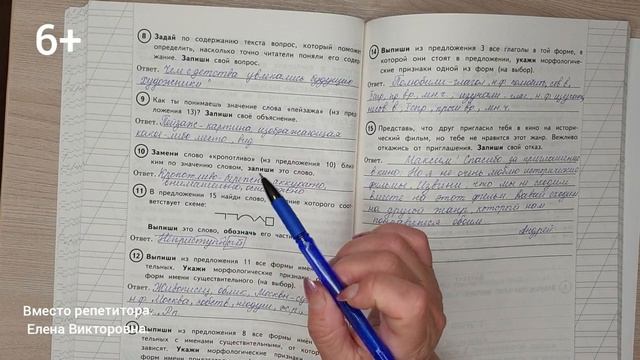 6+
8 Задай по содержанию текста вопрос, который поможет
определить, насколько точно читатели поняли его содер-
жание. Запиши свой вопрос.
Ответ. Чем с детства увлекались будущие
художники
9 Как ты понимаешь значение слова «пейзажа» (из пред-
ложения 13)? Запиши своё объяснение.
Ответ. Пейзаж-картина изображающая
какое-либо место, вид
10 Замени слово «кропотливо» (из предложения 10) близ-
ким по значению словом, запиши это слово.
Ответ. Кропотливо-
внимательно,
11 В предложении 15 найди слово, которого соот-
ветствует схеме:
Выпиши это слово, обозначь его части
Ответ. Неприступный
12 Выпиши из предложения 11 все формы имён
тельных. Укажи морфологические признаки
форм имени существительного (на выбор).
Ответ. Живописец, облик, Москвы-
н.ф. Москва, собств, неодуш,
Выпиши из предложения 8 все формы имён
тельных с именами существительными, от которых
зависят. Укажи морфологические
форм имени
14 Выпиши из предложения 3 все глаголы в той форме, в
которой они стоят в предложении, укажи морфологиче-
ские признаки одной из форм (на выбор).
Ответ. Полюбили-глагол, н.ф. полюбить,
пр. вр., мн.ч.,
прош вр., мн.ч.
15 Представь, что друг пригласил тебя в кино на истори-
ческий фильм, но тебе не нравится этот жанр. Вежливо
откажись от приглашения. Запиши свой отказ.
Ответ. Максим! Спасибо за приглашение
в кино. Но я не очень люблю исторические
фильмы. Извини что мы не сходим
вместе на этот фильм. Давай сходим
на другой жанр, который нам
понравится обоим.
Андрей
Вместо репетитора.
Елена Викторовна